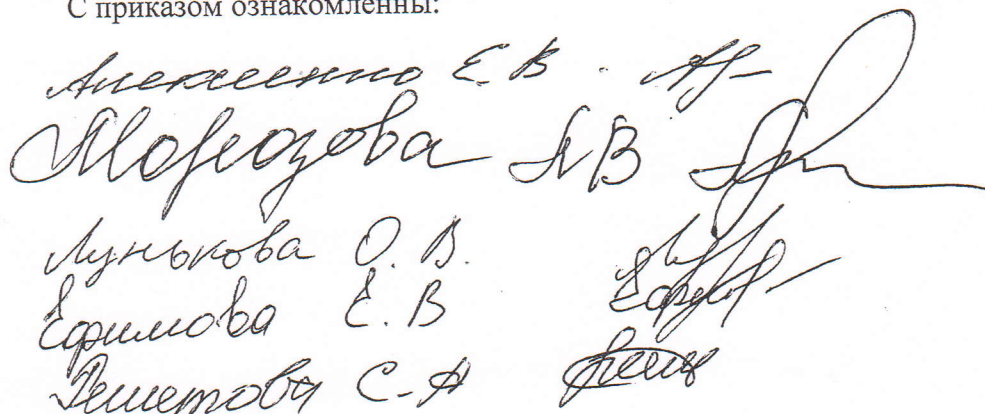 С приказом ознакомленны:
Алексеенко Е.В.
Морозова Л В
Лунькова О. В.
Ефимова Е. В
Решетова С.А